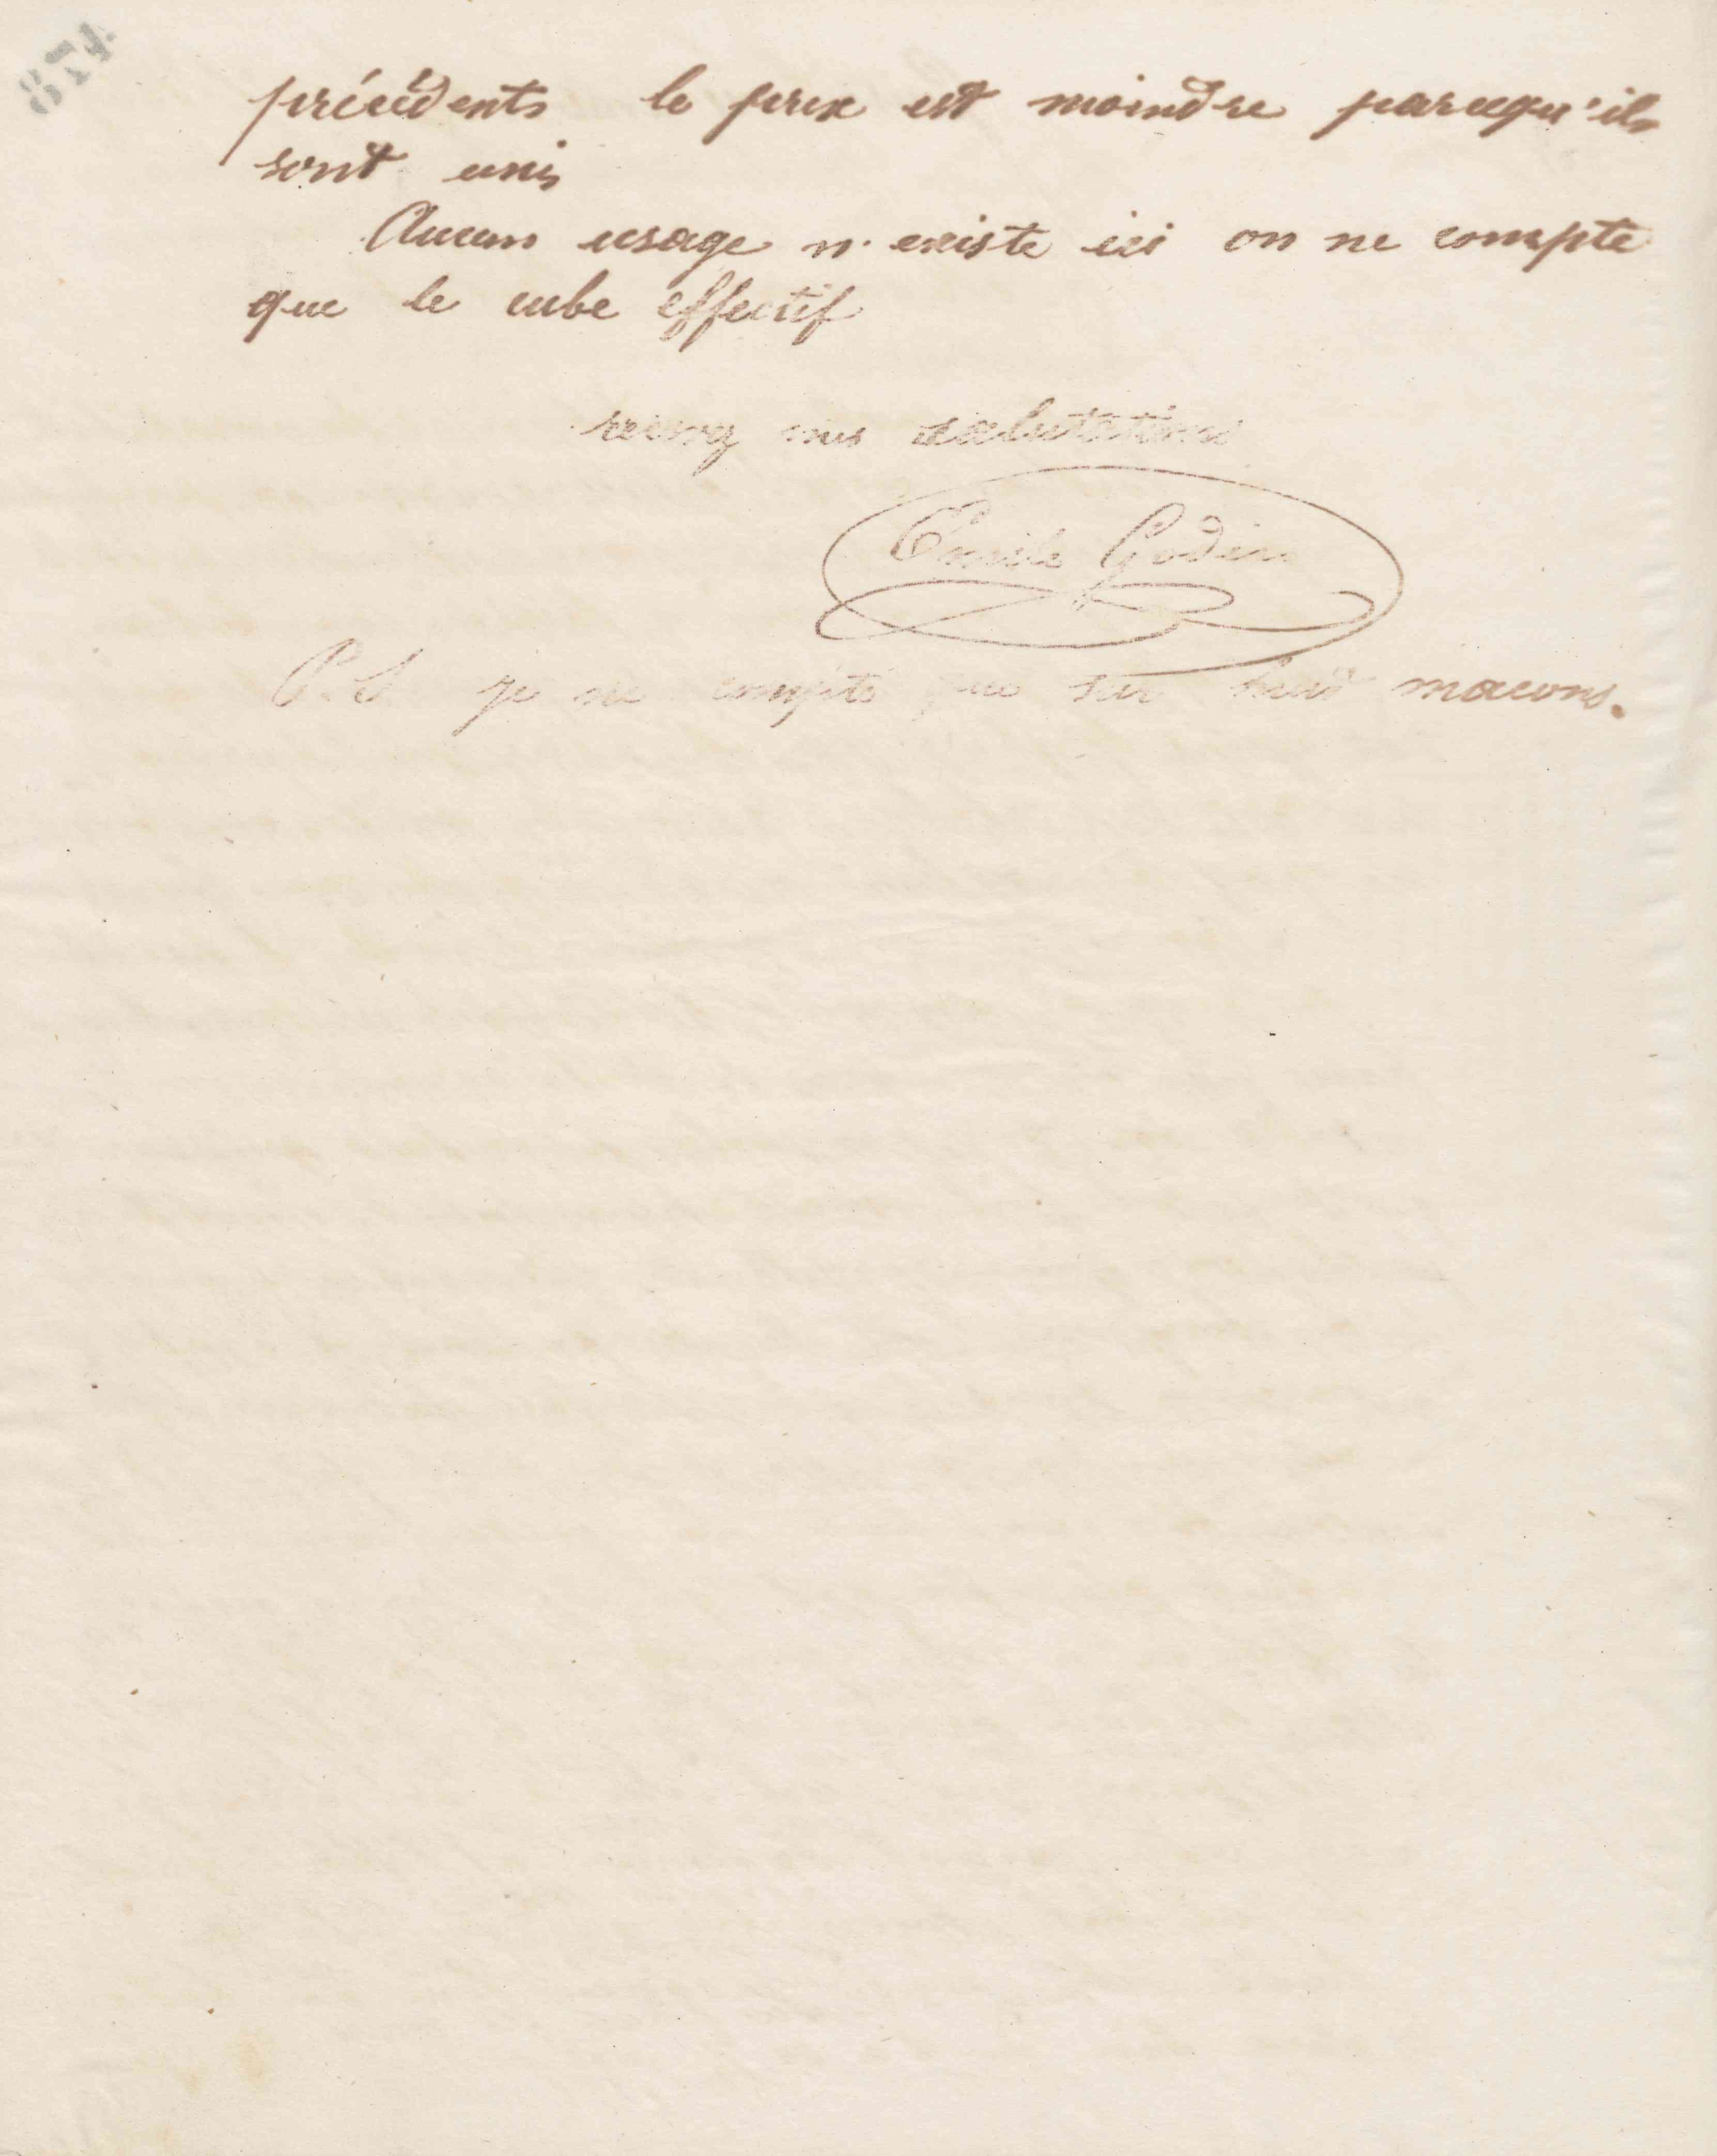 874
précédents le prix est moindre parcequ'ils
sont unis
Aucun usage n'existe ici on ne compte
que le cube effectif
recevez mes salutations
Emile Godin
P.S je ne compte que sur huit maçons.